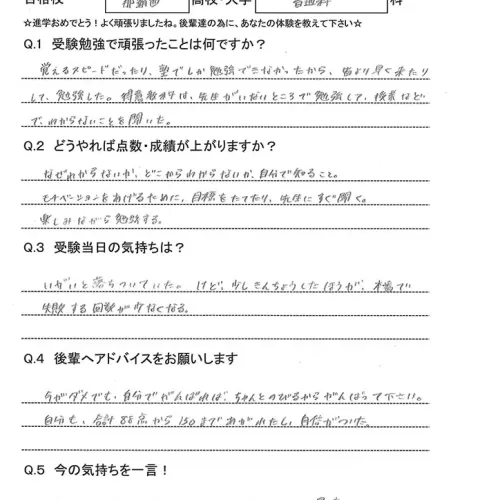 合格校 那覇西 高校・大学 普通科 科
☆進学おめでとう！よく頑張りましたね。後輩達の為に、あなたの体験を教えて下さい☆
Q.1 受験勉強で頑張ったことは何ですか？
覚えるスピードだったり、塾でしか勉強できなかったから、皆より早く来たり
して、勉強した。得意教科は、先生がいないところで勉強して、授業など
で、わからないことを聞いた。
Q.2 どうやれば点数・成績が上がりますか？
なぜわからないか、どこからわからないか、自分で知ること。
モチベーションをあげるために、目標をたてたり、先生にすぐ聞く。
楽しみながら勉強する。
Q.3 受験当日の気持ちは？
いがいと落ちついていた。けど、少しきんちょうしたほうが、本番で
失敗する回数が少なくなる。
Q.4 後輩へアドバイスをお願いします
今がダメでも、自分でがんばれば、ちゃんとのびるからがんばって下さい。
自分も、合計88点から130まであがれたし、自信がついた。
Q.5 今の気持ちを一言！